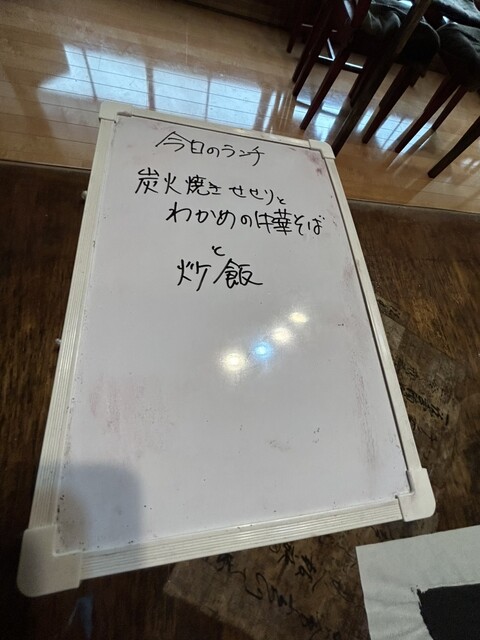 今日のランチ
炭火焼きせせりと
わかめの中華そば
と
炒飯